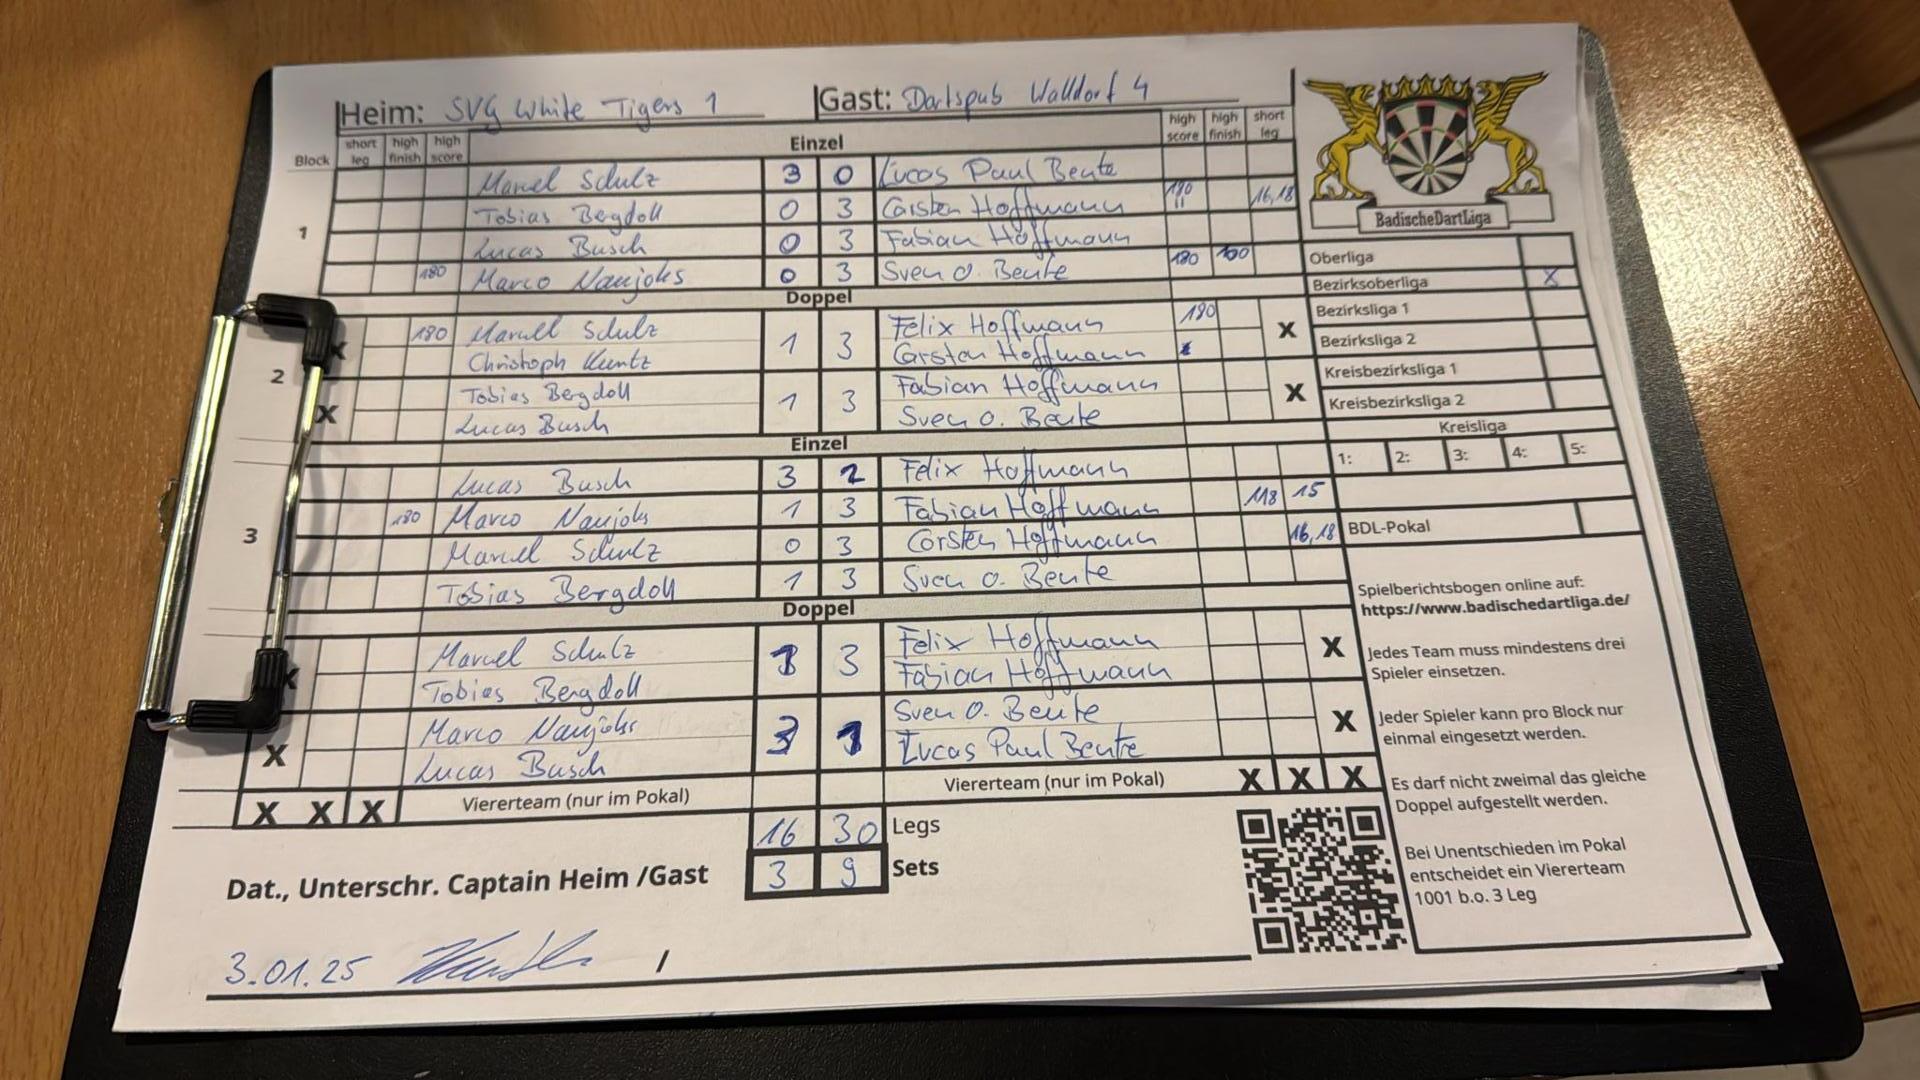 Heim: SVG White Tigers 1 Gast: Dartspub Walldorf 4
Block short leg high finish high score Einzel high score high finish short leg
1
Marcel Schulz 3 0 Lucas Paul Beute
Tobias Bergdoll 0 3 Carsten Hoffmann 180 II 16,18
Lucas Busch 0 3 Fabian Hoffmann
180 Marco Naujoks 0 3 Sven O. Beute 180 100
Doppel
2
X 180 Marcell Schulz 1 3 Felix Hoffmann 180 X
Christoph Kuntz Carsten Hoffmann
X Tobias Bergdoll 1 3 Fabian Hoffmann X
Lucas Busch Sven O. Beute
Einzel
3
Lucas Busch 3 2 Felix Hoffmann
180 Marco Naujoks 1 3 Fabian Hoffmann 118 15
Marcel Schulz 0 3 Carsten Hoffmann 16,18
Tobias Bergdoll 1 3 Sven O. Beute
Doppel
X Marcel Schulz 3 Felix Hoffmann X
Tobias Bergdoll Fabian Hoffmann
X Marco Naujoks 3 1 Sven O. Beute X
Lucas Busch Lucas Paul Beute
X X X Viererteam (nur im Pokal) Viererteam (nur im Pokal) X X X
16 30 Legs
3 9 Sets
Dat., Unterschr. Captain Heim /Gast
3.01.25 /
BadischeDartLiga
Oberliga
Bezirksoberliga X
Bezirksliga 1
Bezirksliga 2
Kreisbezirksliga 1
Kreisbezirksliga 2
Kreisliga
1: 2: 3: 4: 5:
BDL-Pokal
Spielberichtsbogen online auf:
https://www.badischedartliga.de/
Jedes Team muss mindestens drei
Spieler einsetzen.
Jeder Spieler kann pro Block nur
einmal eingesetzt werden.
Es darf nicht zweimal das gleiche
Doppel aufgestellt werden.
Bei Unentschieden im Pokal
entscheidet ein Viererteam
1001 b.o. 3 Leg